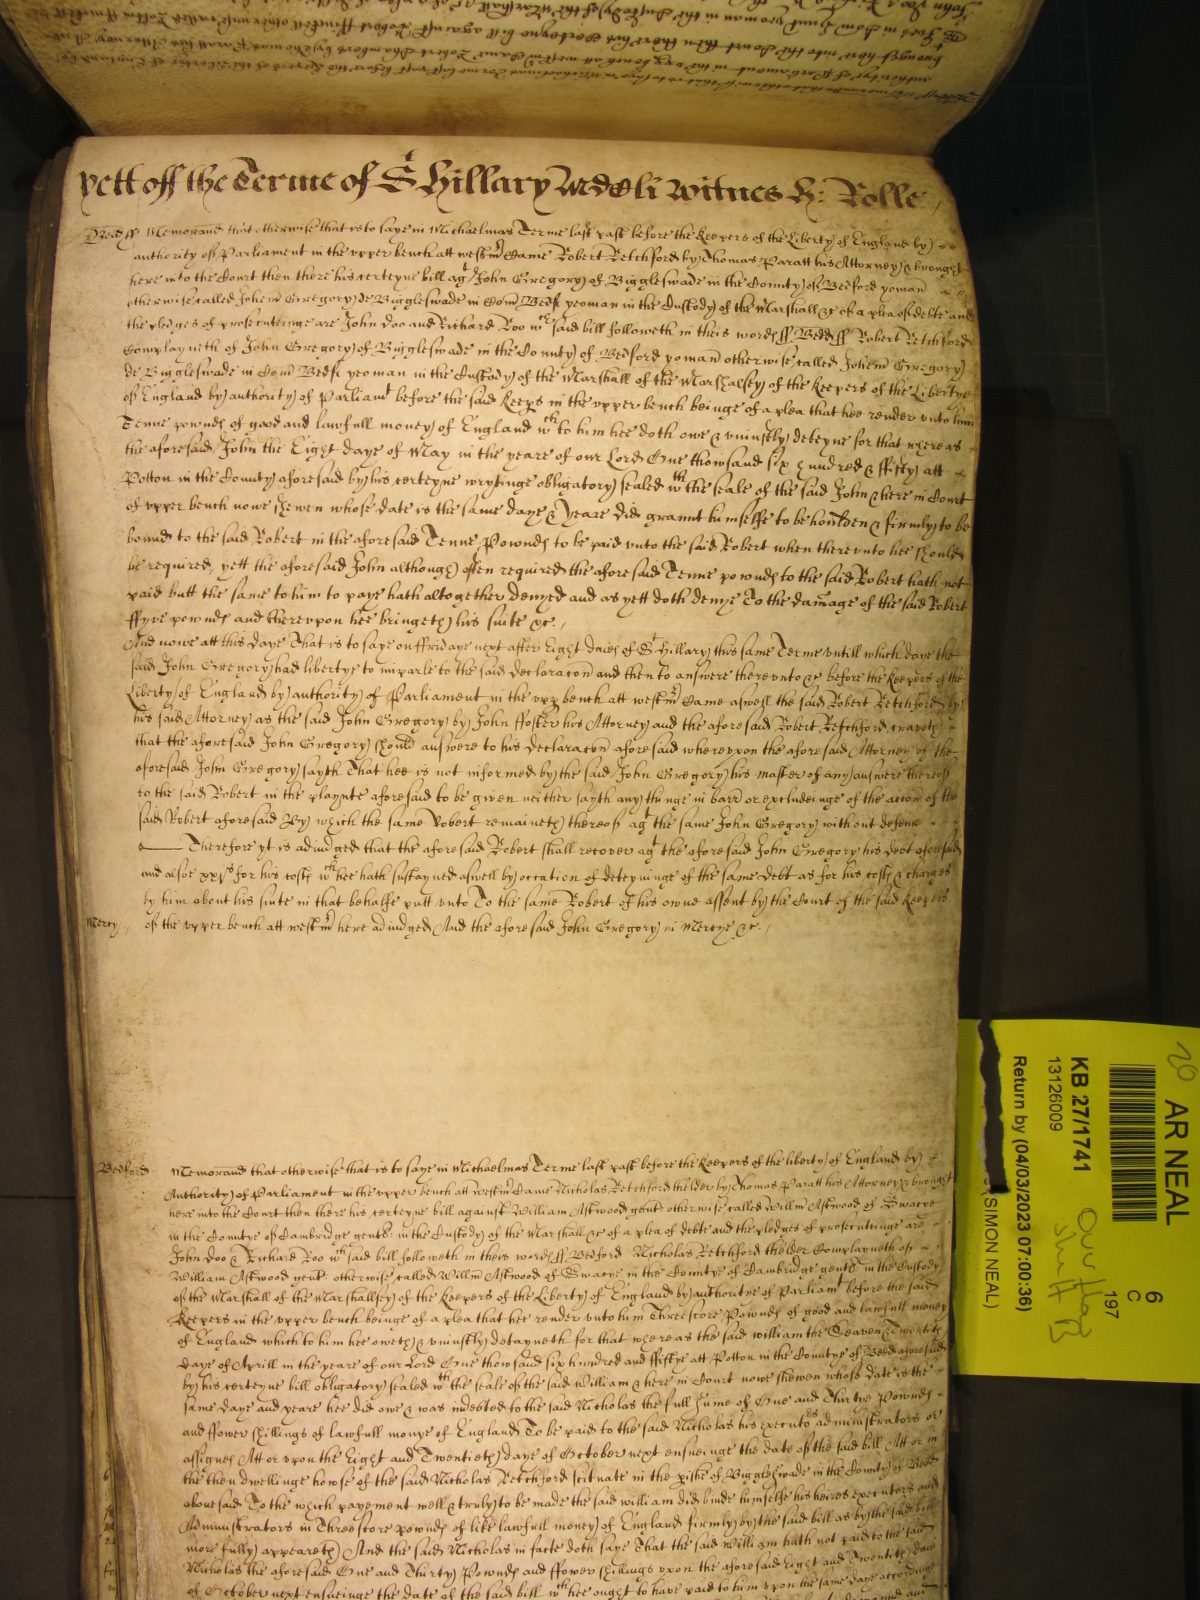 yett off the Terme of St Hillary 1651 Witnes H: Rolle
Bedd ss Memorand that otherwise that is to saye in Michaelmas Terme last past before the Keepers of the Liberty of England by
authority of Parliament in the upper bench att westmr Came Robert Retchford by Thomas Paratt his Attorney & brought
here into the Court then there his certeyne bill agt John Gregory of Biggleswade in the County of Bedford yoman
otherwise called John Gregory de Biggleswade in Com Bedf yeoman in the Custody of the Marshall &c of a plea of debte and
the pledges of prosecutinge are John Doo and Richard Roo wch said bill followeth in theis words ss Bedd ss Robert Retchford
Complayneth of John Gregory of Biggleswade in the County of Bedford yoman otherwise called John Gregory
de Biggleswade in Com Bedf yeoman in the Custody of the Marshall of the Marshalsey of the Keepers of the Libertye
of England by authority of Parliamt before the said Keeps in the upper bench beinge of a plea that hee render unto him
Tenne pownds of good and lawfull money of England wch to him hee doth owe & uniustly deteyne for that whereas
the aforesaid John the Eight daye of May in the yeare of our Lord One thowsand six hundred & fifty att
Potton in the County aforesaid by his certeyne wrytinge obligatory sealed wth the seale of the said John & here in Court
of upper bench nowe shewen whose date is the same daye & yeare did graunt himselfe to be houlden & firmly to be
bound to the said Robert in the aforesaid Tenne Pownds to be paid unto the said Robert when thereunto hee should
be required, yett the aforesaid John although often required the aforesaid Tenne pownds to the said Robert hath not
paid butt the same to him to paye hath altogether denyed and as yett doth denye To the damage of the said Robert
ffyve pownds and thereupon hee bringeth his suite &c.
And nowe att this daye That is to saye on ffridaye next after Eight daies of St Hillary this same Terme untill which daye the
said John Gregory had libertye to imparle to the said declaracon and then to answere thereunto &c before the Keepers of the
Liberty of England by authority of Parliament in the upp bench att westmr Came aswell the said Robert Retchford by
his said Attorney as the said John Gregory by John ffoster his Attorney and the aforesaid Robert Retchford craveth
that the aforesaid John Gregory should answere to his declaracon aforesaid whereupon the aforesaid Attorney of the
aforesaid John Gregory sayth That hee is not informed by the said John Gregory his master of any answere thereof
to the said Robert in the playnte aforesaid to be given neither sayth any thinge in barr or excludeinge of the accon of the
said Robert aforesaid By which the same Robert remaineth thereof agt the same John Gregory without defence
Therefore yt is adiudged that the aforesaid Robert shall recover agt the aforesaid John Gregory his debt aforesaid
and alsoe for his costs wch hee hath susteyned aswell by occation of deteyninge of the same debt as for his costs & charges
by him about his suite in that behalfe putt unto To the same Robert of his owne assent by the Court of the said Keepers
Mercy of the upper bench att westmr here adiudged And the aforesaid John Gregory in Mercye &c.
Bedford Memorand that otherwise that is to saye in Michaelmas Terme last past before the Keepers of the liberty of England by
Authority of Parliament in the upper bench att westmr Came Nicholas Retchford thelder by Thomas Paratt his Attorney & brought
here into the Court then there his certeyne bill against William Astwood gent otherwise called Willm Astwood of Swacye
in the Countye of Cambridge gent in the Custody of the Marshall &c of a plea of debte and the pledges of prosecutinge are
John Doo & Richard Roo wch said bill followeth in theis words ss Bedford Nicholas Retchford thelder Complayneth of
William Astwood gent otherwise called Willm Astwood of Swacye in the Countye of Cambridge gent in the Custody
of the Marshall of the Marshallsey of the Keepers of the Liberty of England by authoritye of Parliamt before the said
Keepers in the upper bench beinge of a plea that hee render unto him Threescore Pownds of good and lawfull money
of England which to him hee oweth & uniustly detayneth for that whereas the said william the Seaven & Twentith
daye of Aprill in the yeare of our Lord One thowsand six hundred and fiftye att Potton in the Countye of Bedd aforesaid
by his certeyne bill obligatory sealed wth the seale of the said William & here in Court nowe shewen whose date is the
same daye and yeare hee did owe & was indebted to the said Nicholas the full sume of One and Thirtye Pownds
and ffower shillings of lawfull monye of England To be paid to the said Nicholas his executors administrators or
assignes Att or upon the Eight and Twentieth daye of October next ensueinge the date of the said bill Att or in
the then dwellinge howse of the said Nicholas Retchford scituate in the pishe of Biggleswade in the County of Bedd
abovesaid To the which payement well & truly to be made the said william did binde himselfe his heires executors and
Administrators in Threescore pownds of like lawfull money of England firmly by the said bill as by the said bill
more fully appeareth And the said Nicholas in facte doth saye That the said William hath not paid to the said
Nicholas the aforesaid One and Thirty Pownds and ffower shillings upon the aforesaid Eight and Twentieth daye
of October next ensueinge the date of the said bill wch hee ought to have paid to him upon the same daye accordinge
20
AR NEAL
6
C
197
KB 27/1741
13126009
Return by (04/03/2023 07:00:36)
(SIMON NEAL)